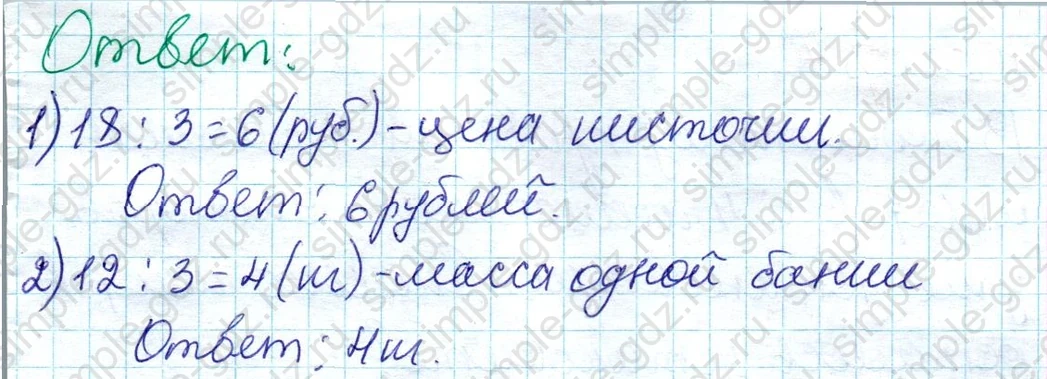 Ответ:
1) 18 : 3 = 6 (руб.) - цена кисточки.
Ответ: 6 рублей.
2) 12 : 3 = 4 (кг) - масса одной банки
Ответ: 4 кг.
simple-gdz.ru